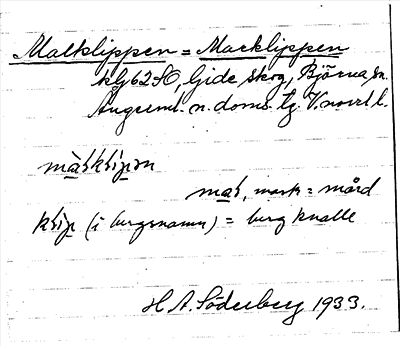 Malklippen = Marklippen
klg 62 SO, Gide skog, Björna, sn.
Ångerml. n. doms. tg. V.norrl. l.
màrklipən
mar, mark = mård
klip (i bergsnamn) = berg knalle
H A. Söderberg 1933.